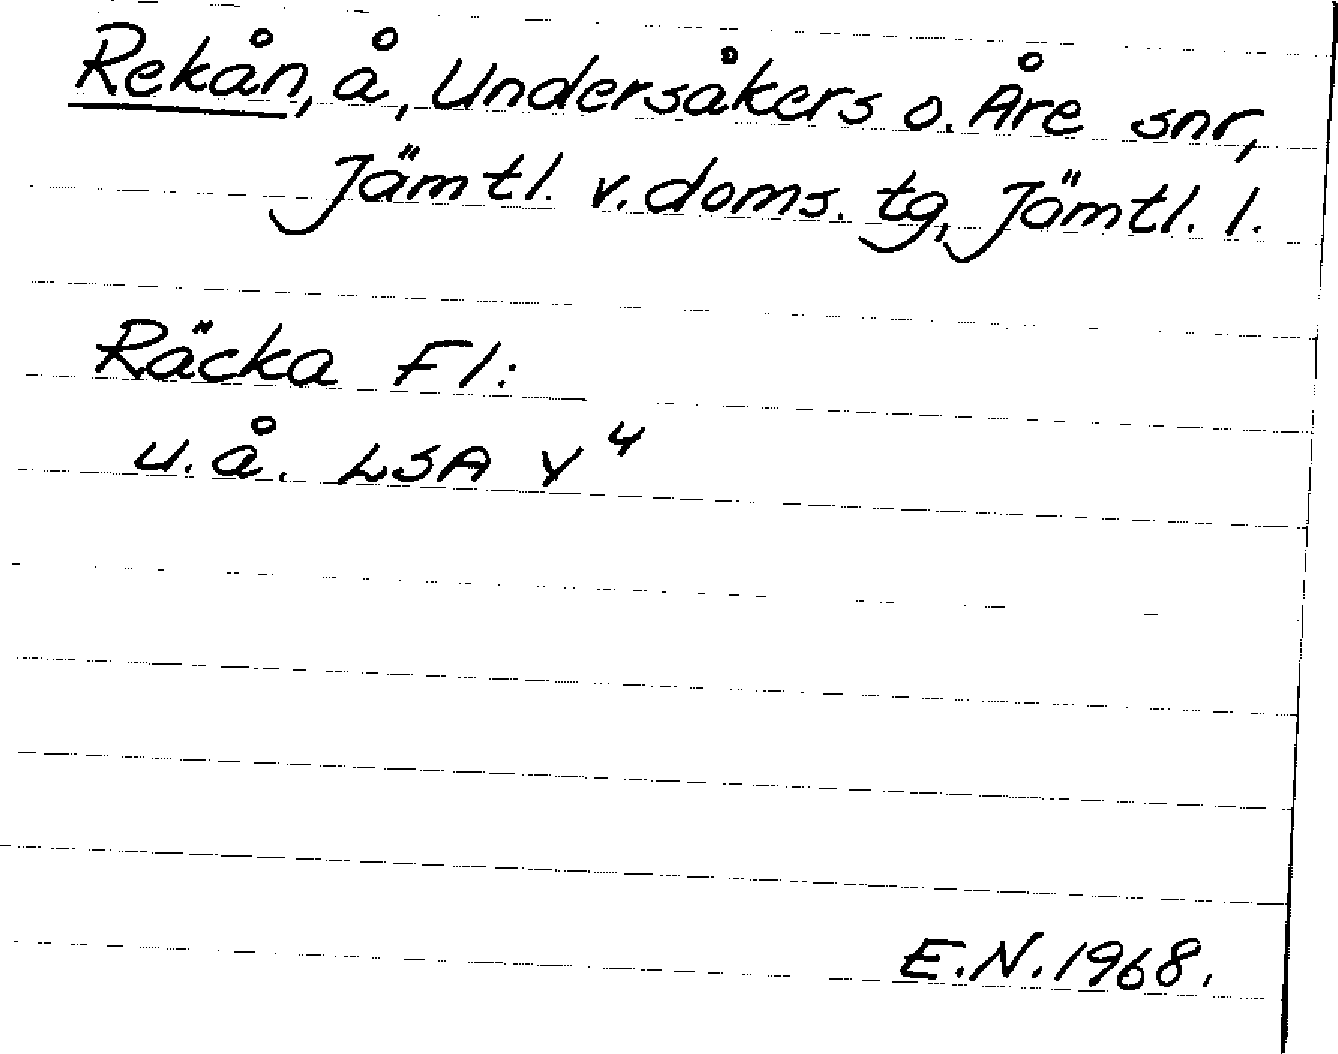 Rekån, å, Undersåkers o. Åre snr,
Jämtl. v. doms. tg, Jämtl. l.
Räcka Fl:
u.å. LSA Y4
E.N. 1968.